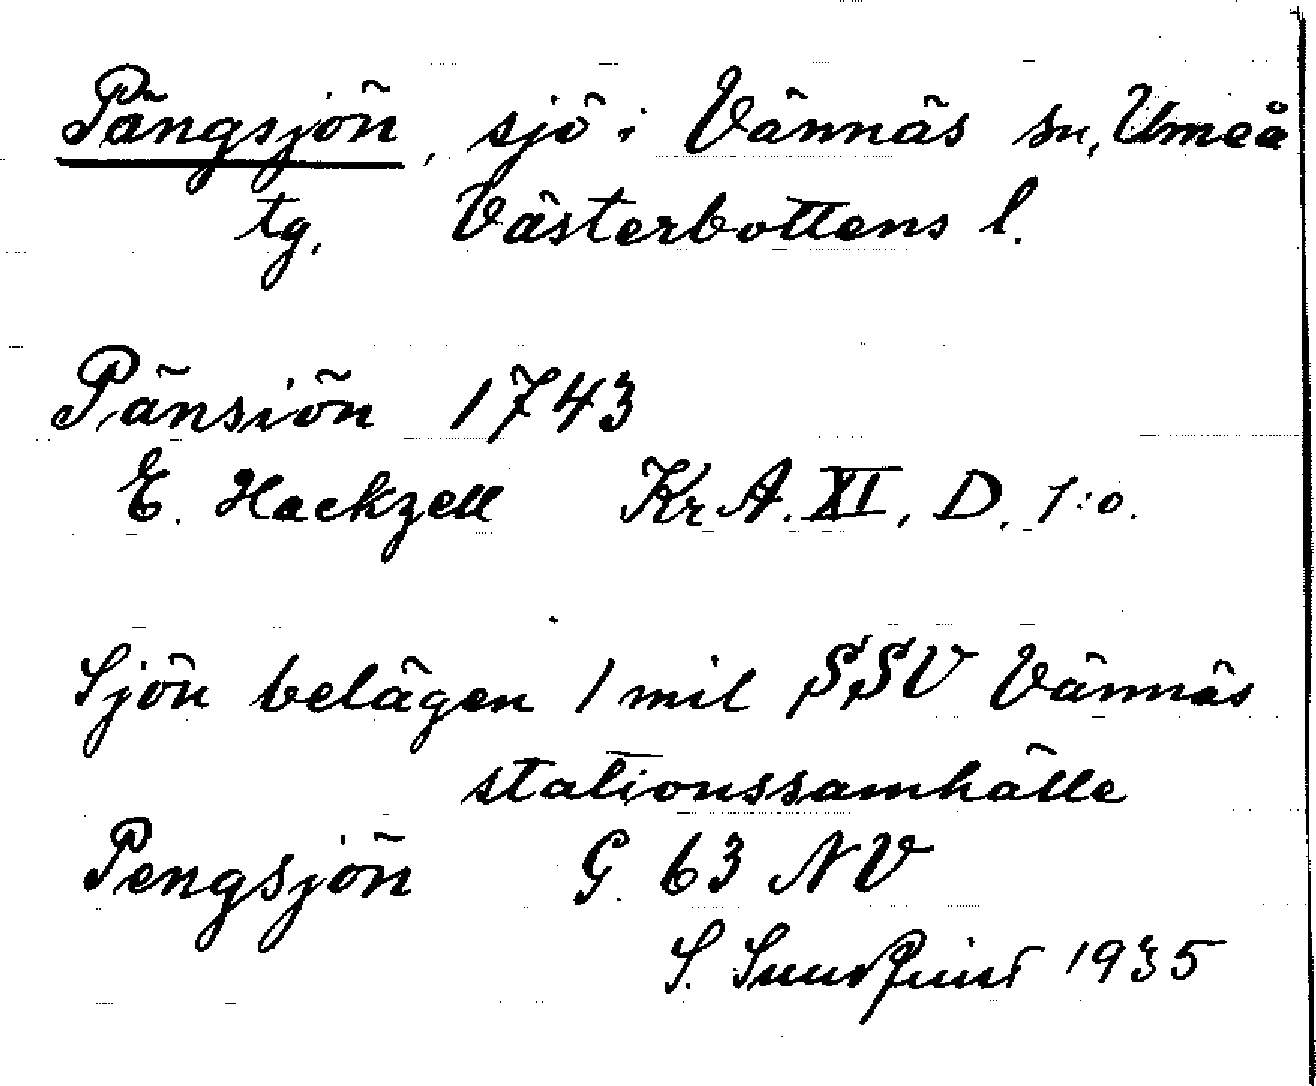 Pängsjön, sjö i Vännäs sn, Umeå
tg, Västerbottens l.
Pänsiön 1743
E. Hackzell Kr A. XI, D. 1:o.
Sjön belägen 1 mil SSV Vännäs
stationssamhälle
Pengsjön G. 63 NV
S. Sundquist 1935